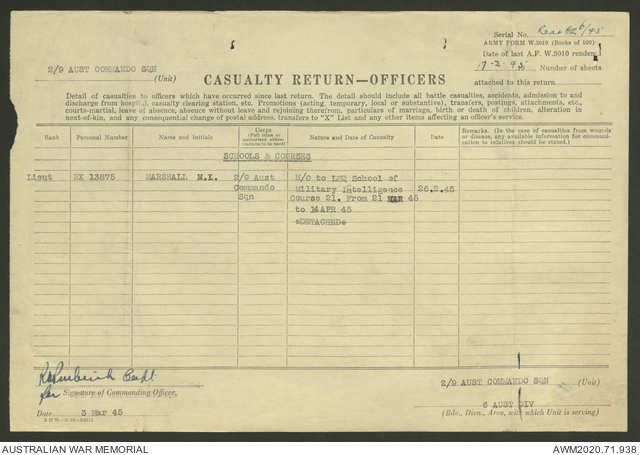 Serial No. Rear HQ 6/45
ARMY FORM W.3010 (Books of 100)
Date of last A.F. W.3010 rendered
17.2.45 Number of sheets
attached to this return
2/9 AUST COMMANDO SQN (Unit)
CASUALTY RETURN—OFFICERS
Detail of casualties to officers which have occurred since last return. The detail should include all battle casualties, accidents, admission to and
discharge from hospital, casualty clearing station, etc. Promotions (acting, temporary, local or substantive), transfers, postings, attachments, etc.,
courts-martial, leave of absence, absence without leave and rejoining therefrom, particulars of marriage, birth or death of children, alteration in
next-of-kin, and any consequential change of postal address, transfers to "X" List and any other items affecting an officer's service.
Rank Personal Number Name and Initials Corps (Full titles or authorised abbreviations to be used) Nature and Date of Casualty Date Remarks. (In the case of casualties from wounds or disease, any available information for communication to relatives should be stated.)
SCHOOLS & COURSES
Lieut NX 13875 MARSHALL N.I. 2/9 Aust M/O to LHQ School of
Commando Military Intelligence 26.2.45
Sqn Course 21. From 21 MAR 45
to 14 APR 45
*DETACHED*
Capt
for Signature of Commanding Officer.
Date 3 Mar 45
2/9 AUST COMMANDO SQN (Unit)
6 AUST DIV
(Bde., Divn., Area, with which Unit is serving)
AUSTRALIAN WAR MEMORIAL
AWM2020.71.938